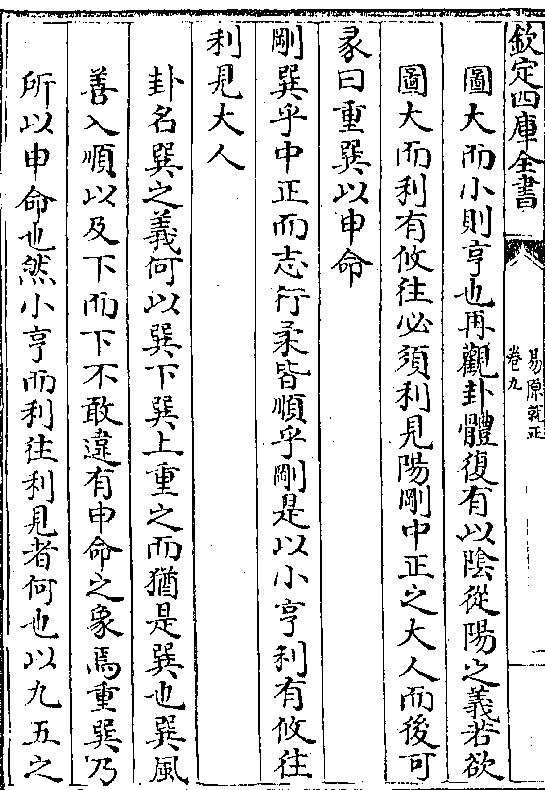 欽定四庫全書
易原就正
卷九
圖大而小則亨也再觀卦體復有以陰從陽之義若欲
圖大而利有攸往必須利見陽剛中正之大人而後可
彖曰重巽以申命
剛巽乎中正而志行柔皆順乎剛是以小亨利有攸往
利見大人
卦名巽之義何以巽下巽上重之而猶是巽也巽風
善入順以及下而下不敢違有申命之象焉重巽乃
所以申命也然小亨而利往利見者何也以九五之